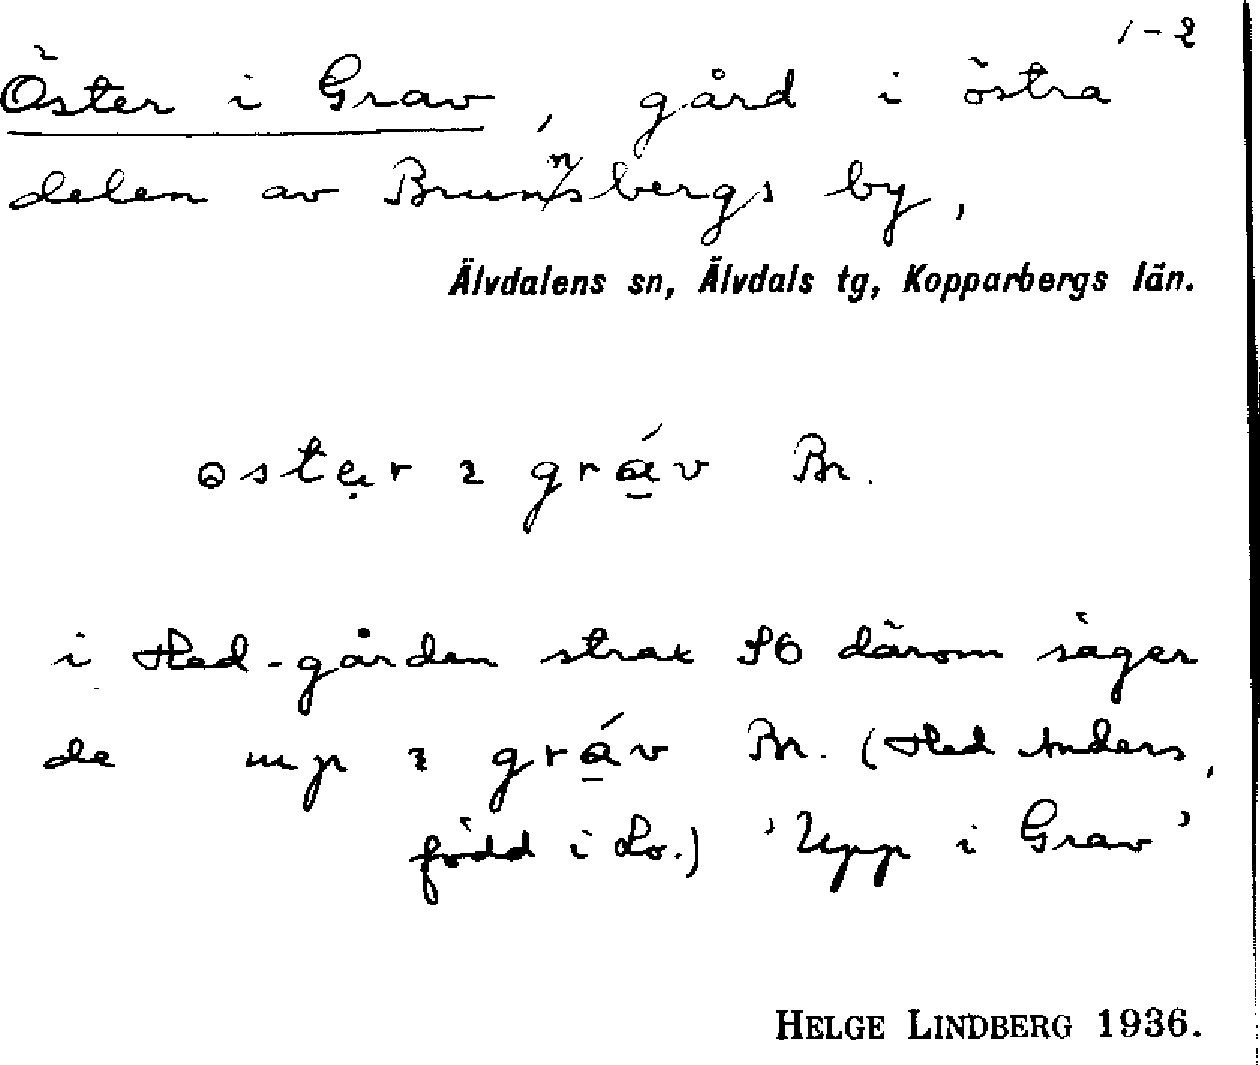 1-2
Öster i Grav, gård i östra
delen av Brunnsbergs by,
Älvdalens sn, Älvdals tg, Kopparbergs län.
i Hed-gården strax SÖ därom säger
de upp ı gráv Br. (Hed Anders,
född i Lo.) 'Upp i Grav'
HELGE LINDBERG 1936.